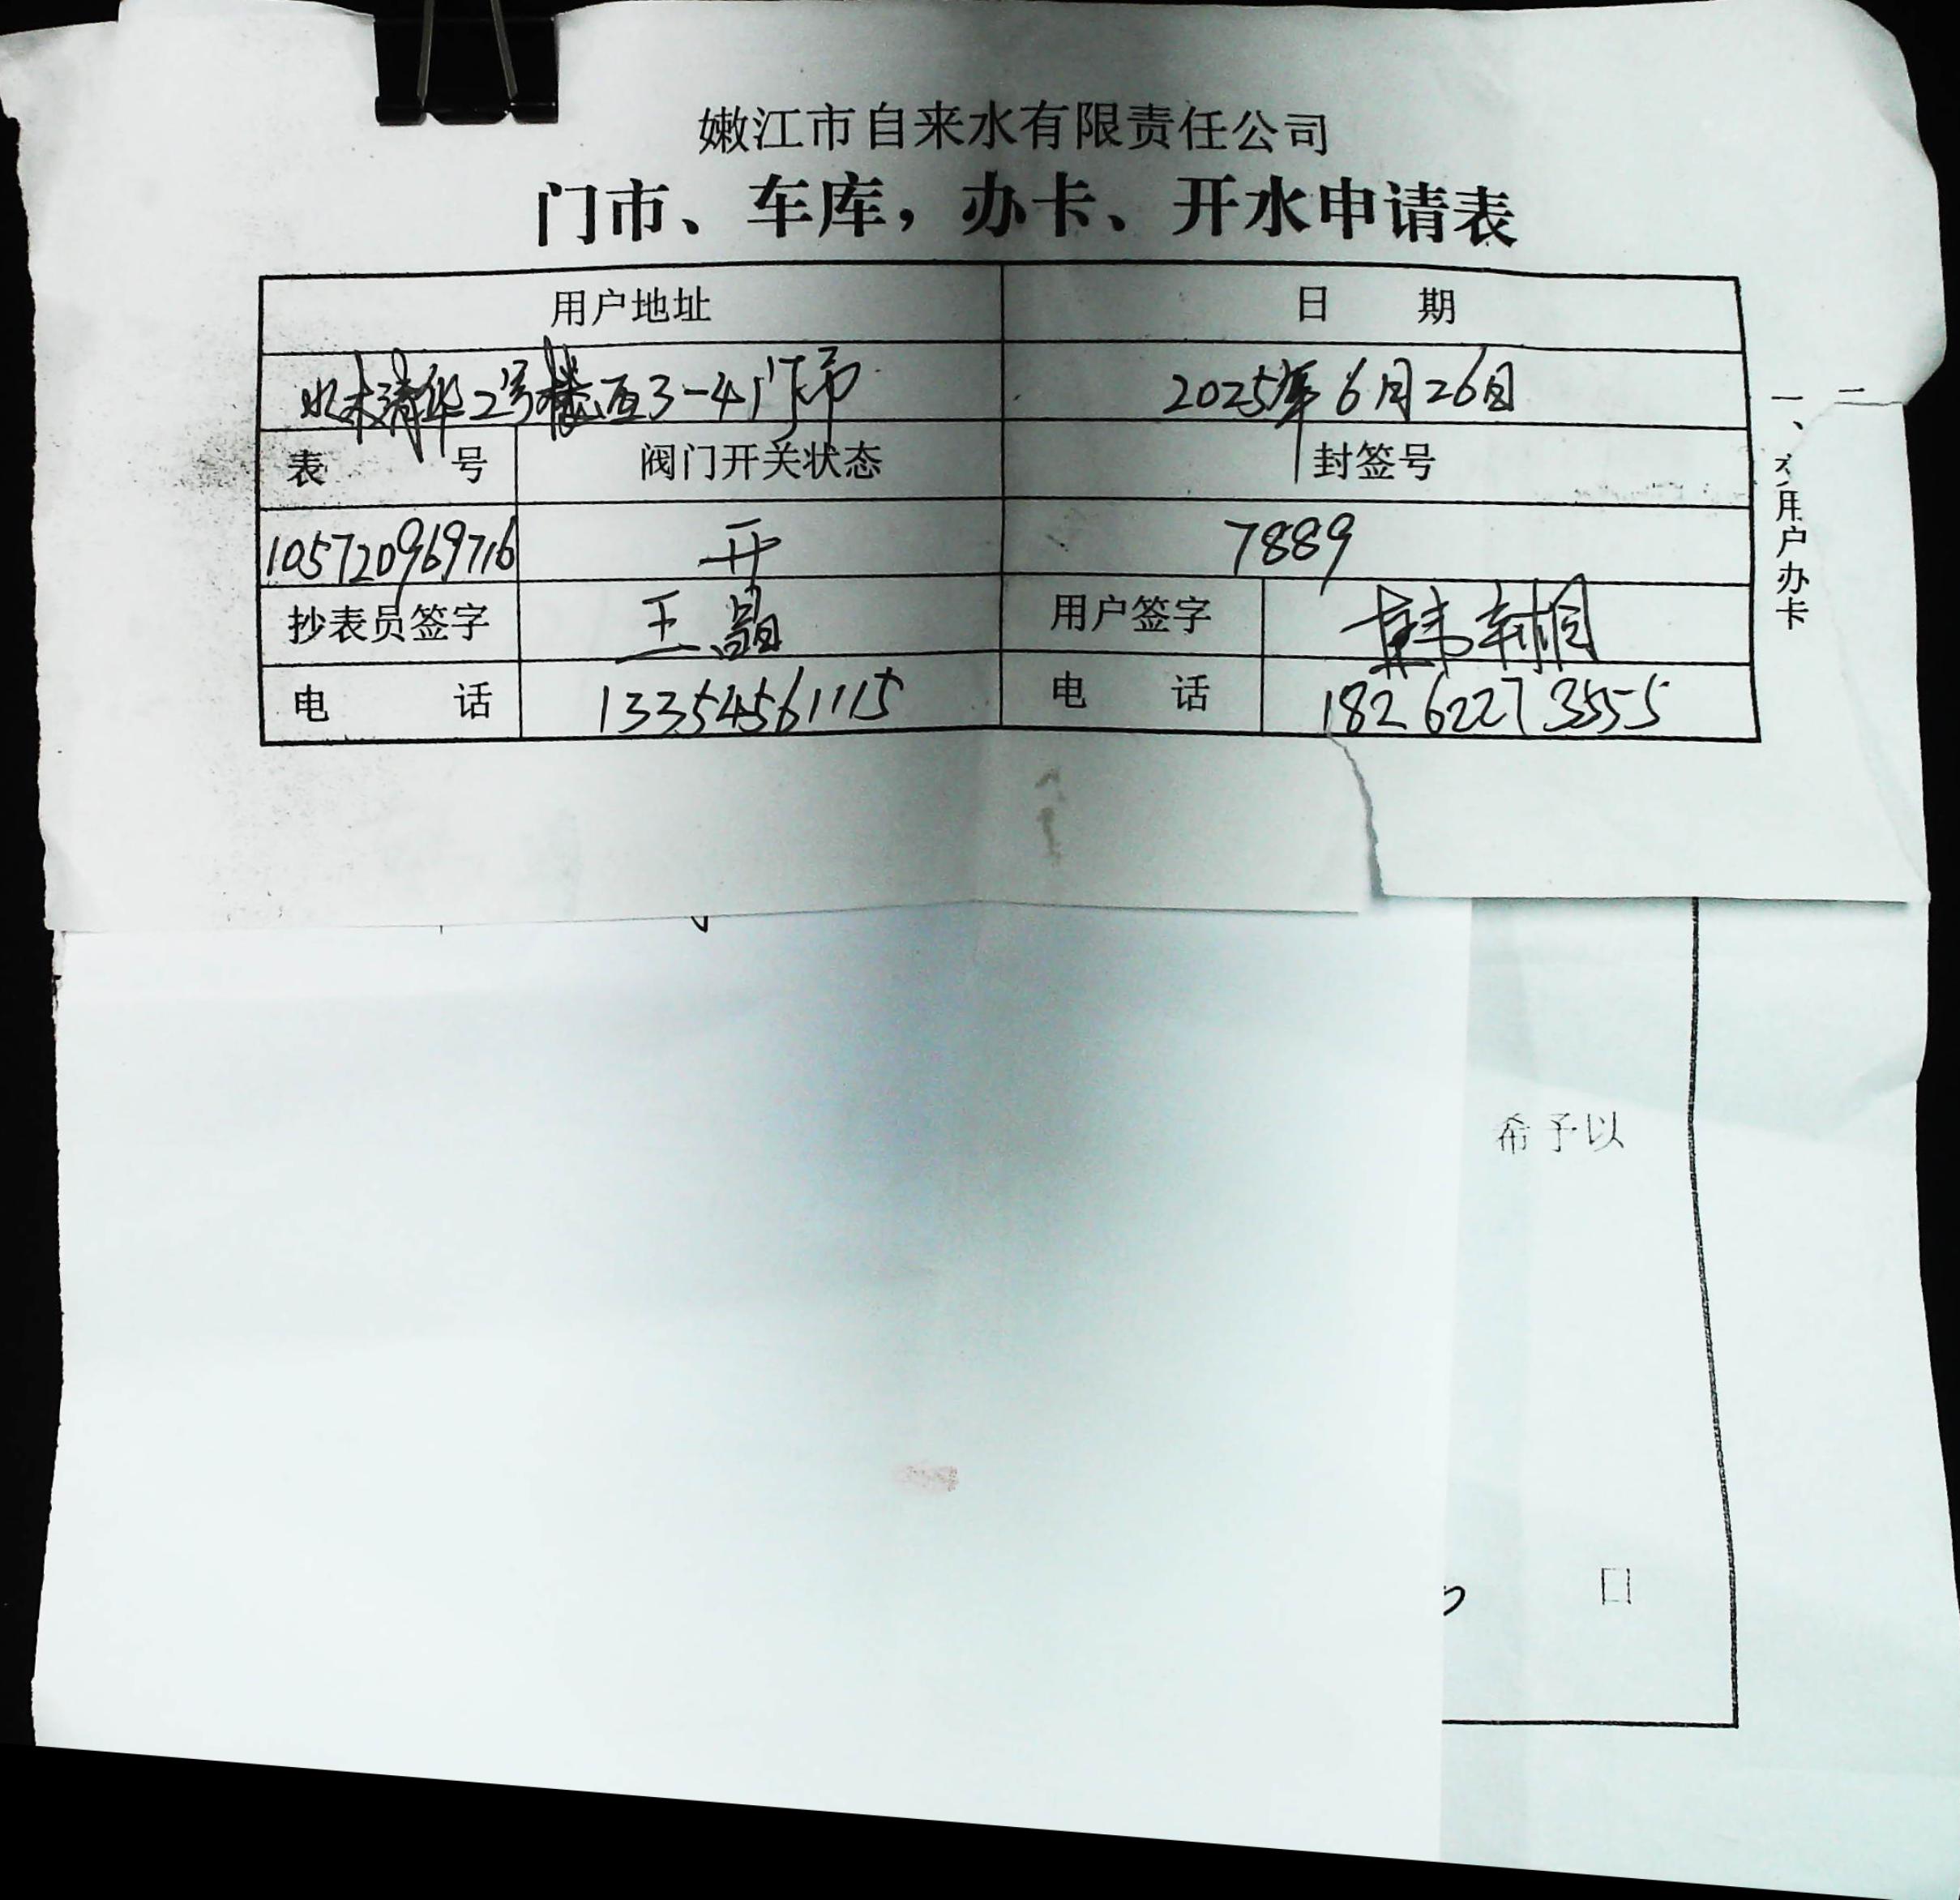 嫩江市自来水有限责任公司
门市、车库，办卡、开水申请表
用户地址 日 期
水木清华2号楼西3-4门市 2025年6月26日
表 号 阀门开关状态 封签号
105720969716 开 7889
抄表员签字 王晶 用户签字 韩
电 话 13354561115 电 话 18262273555
一、
用户办卡
二
希予以
日